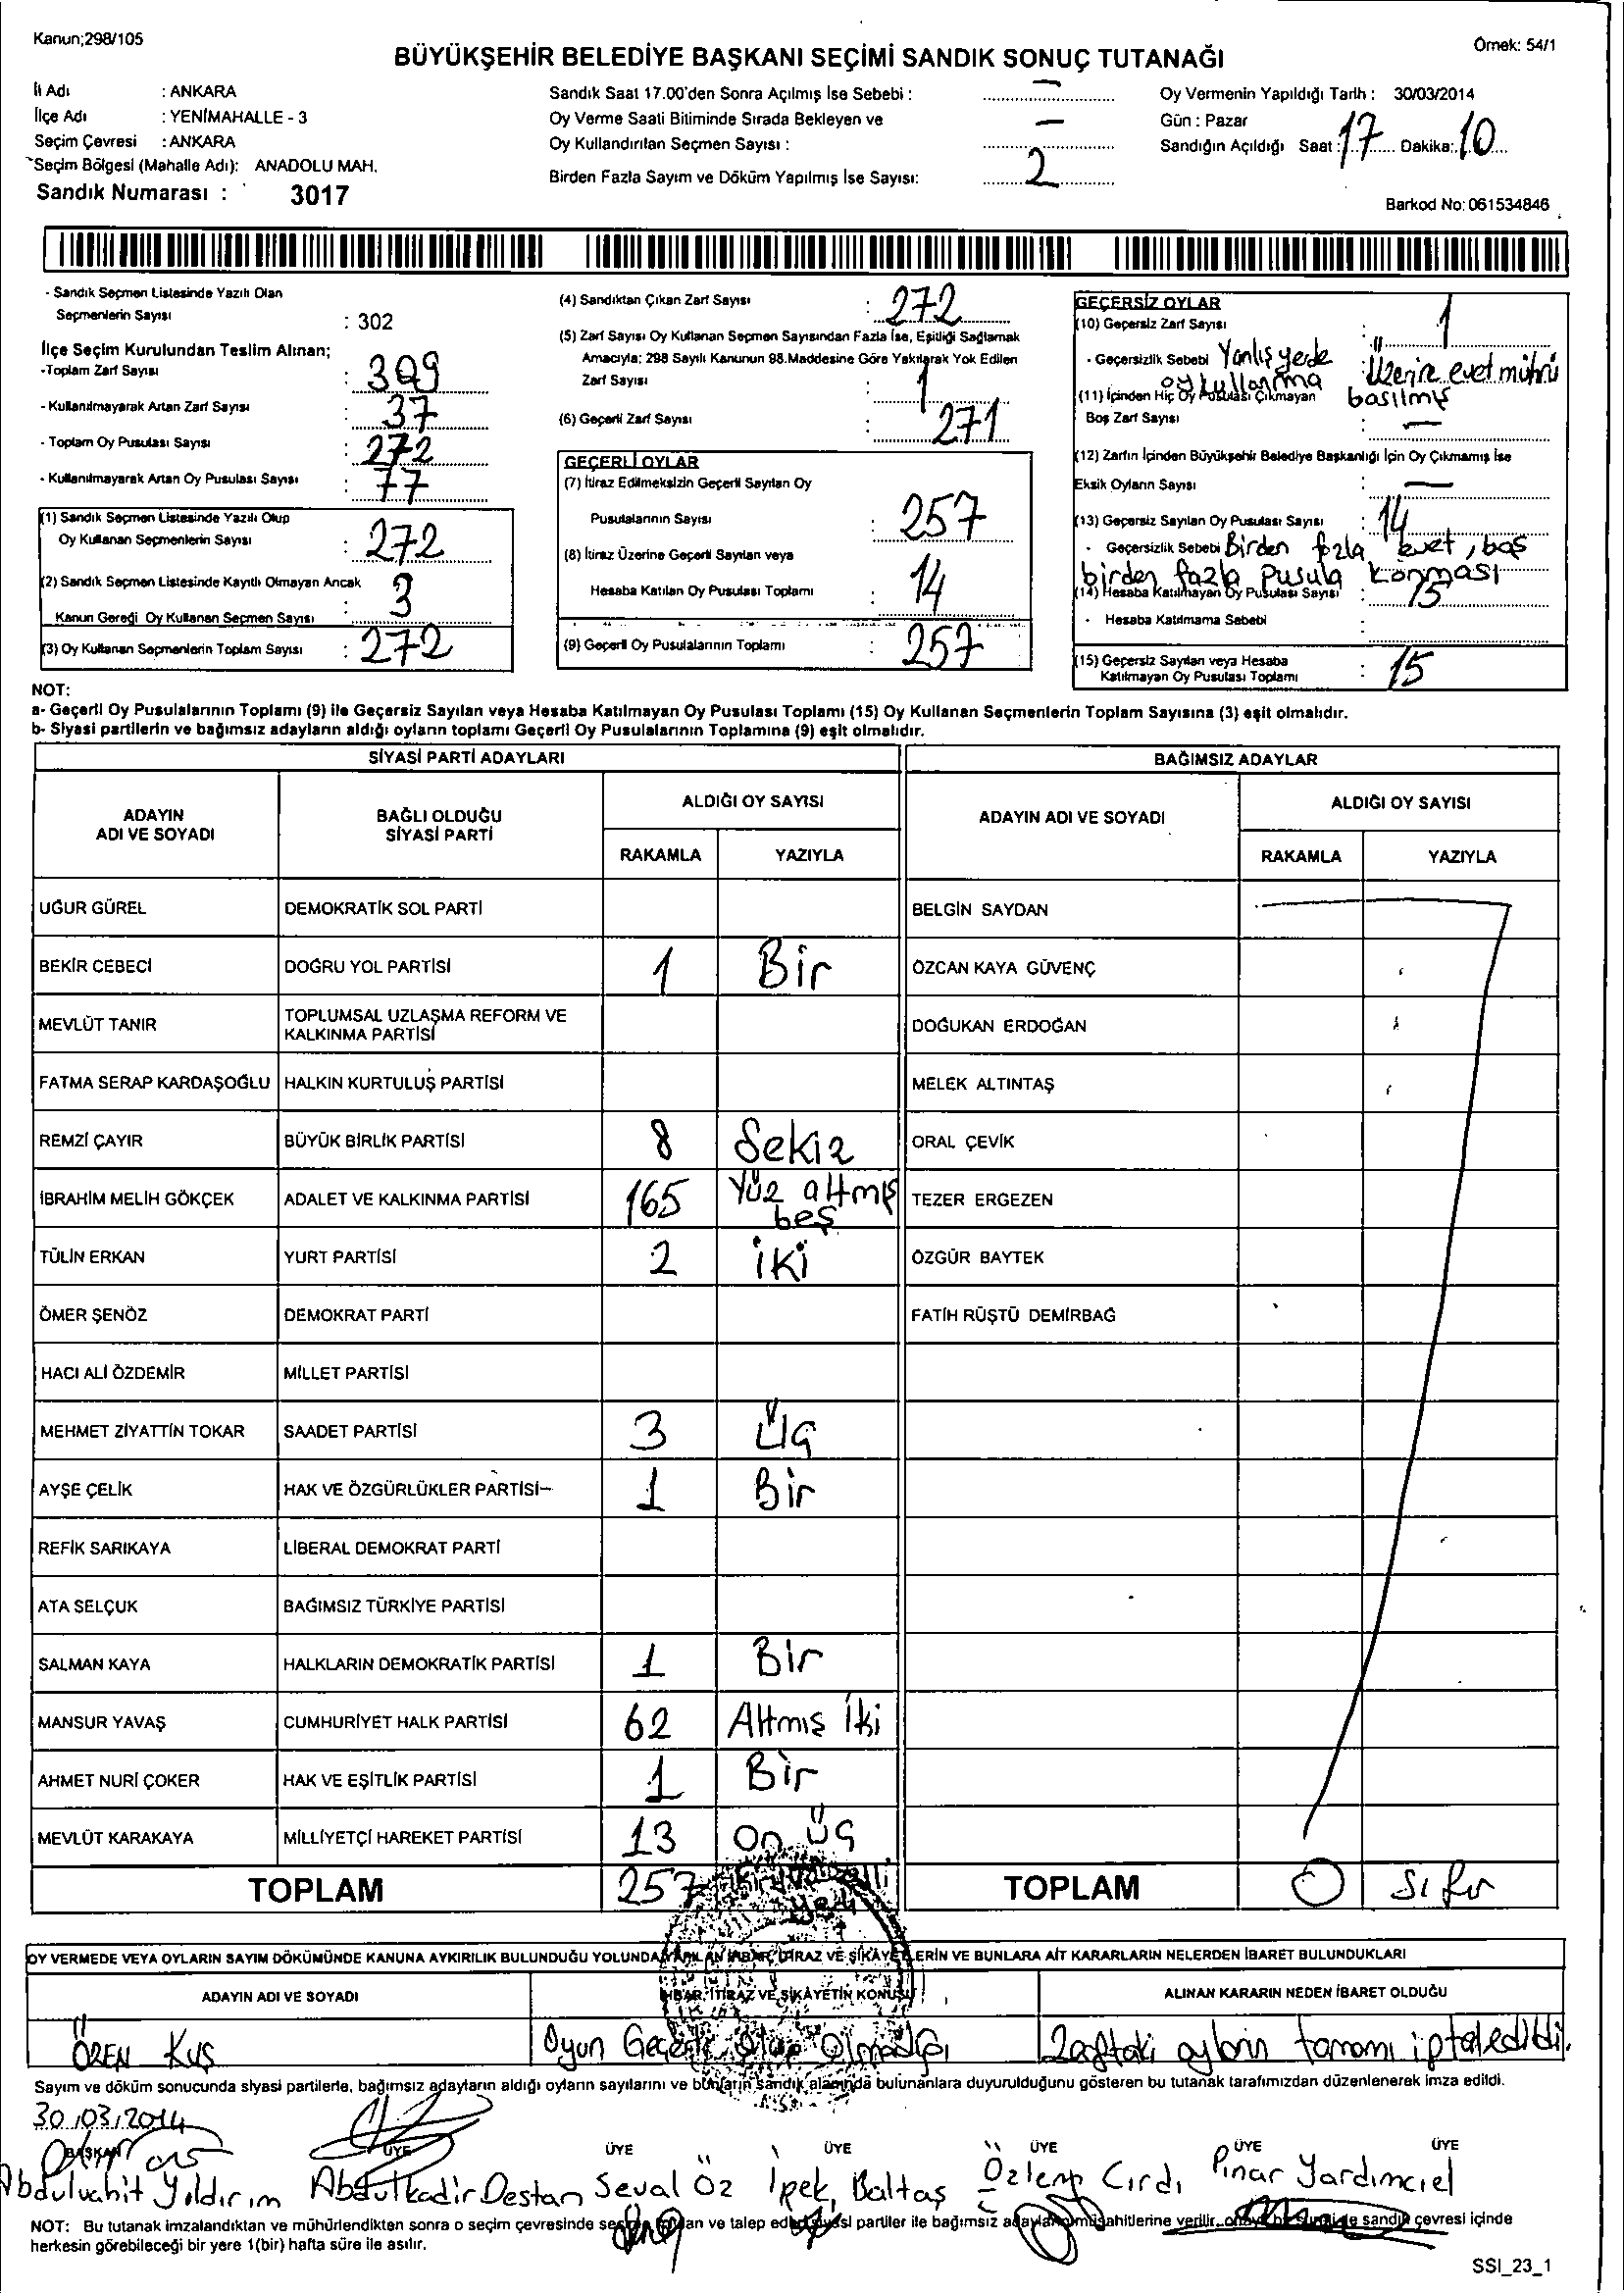 Kanun;298/105
Örnek: 54/1
BÜYÜKŞEHİR BELEDİYE BAŞKANI SEÇİMİ SANDIK SONUÇ TUTANAĞI
İl Adı : ANKARA
İlçe Adı : YENİMAHALLE - 3
Seçim Çevresi : ANKARA
Seçim Bölgesi (Mahalle Adı): ANADOLU MAH.
Sandık Numarası : 3017
Sandık Saat 17.00'den Sonra Açılmış İse Sebebi : –
Oy Verme Saati Bitiminde Sırada Bekleyen ve
Oy Kullandırılan Seçmen Sayısı : –
Birden Fazla Sayım ve Döküm Yapılmış İse Sayısı: 2
Oy Vermenin Yapıldığı Tarih : 30/03/2014
Gün : Pazar
Sandığın Açıldığı Saat : 17 Dakika: 10
Barkod No: 061534846
- Sandık Seçmen Listesinde Yazılı Olan
Seçmenlerin Sayısı : 302
İlçe Seçim Kurulundan Teslim Alınan;
-Toplam Zarf Sayısı : 309
- Kullanılmayarak Artan Zarf Sayısı : 37
- Toplam Oy Pusulası Sayısı : 272
- Kullanılmayarak Artan Oy Pusulası Sayısı : 77
(1) Sandık Seçmen Listesinde Yazılı Olup
Oy Kullanan Seçmenlerin Sayısı : 272
(2) Sandık Seçmen Listesinde Kayıtlı Olmayan Ancak
Kanun Gereği Oy Kullanan Seçmen Sayısı : 3
(3) Oy Kullanan Seçmenlerin Toplam Sayısı : 272
(4) Sandıktan Çıkan Zarf Sayısı : 272
(5) Zarf Sayısı Oy Kullanan Seçmen Sayısından Fazla İse, Eşitliği Sağlamak
Amacıyla; 298 Sayılı Kanunun 98.Maddesine Göre Yakılarak Yok Edilen
Zarf Sayısı : 1
(6) Geçerli Zarf Sayısı : 271
GEÇERLİ OYLAR
(7) İtiraz Edilmeksizin Geçerli Sayılan Oy
Pusulalarının Sayısı : 257
(8) İtiraz Üzerine Geçerli Sayılan veya
Hesaba Katılan Oy Pusulası Toplamı : 14
(9) Geçerli Oy Pusulalarının Toplamı : 257
GEÇERSİZ OYLAR
(10) Geçersiz Zarf Sayısı : 1
- Geçersizlik Sebebi Yanlış yerde oy kullanma : Üzerine evet mührü basılmış
(11) İçinden Hiç Oy Pusulası Çıkmayan
Boş Zarf Sayısı : –
(12) Zarfın İçinden Büyükşehir Belediye Başkanlığı İçin Oy Çıkmamış İse
Eksik Oyların Sayısı : –
(13) Geçersiz Sayılan Oy Pusulası Sayısı : 14
- Geçersizlik Sebebi Birden fazla evet, boş
birden fazla pusula konması
(14) Hesaba Katılmayan Oy Pusulası Sayısı : 15
- Hesaba Katılmama Sebebi :
(15) Geçersiz Sayılan veya Hesaba
Katılmayan Oy Pusulası Toplamı : 15
NOT:
a- Geçerli Oy Pusulalarının Toplamı (9) ile Geçersiz Sayılan veya Hesaba Katılmayan Oy Pusulası Toplamı (15) Oy Kullanan Seçmenlerin Toplam Sayısına (3) eşit olmalıdır.
b- Siyasi partilerin ve bağımsız adayların aldığı oyların toplamı Geçerli Oy Pusulalarının Toplamına (9) eşit olmalıdır.
SİYASİ PARTİ ADAYLARI
BAĞIMSIZ ADAYLAR
ADAYIN ADI VE SOYADI BAĞLI OLDUĞU SİYASİ PARTİ ALDIĞI OY SAYISI RAKAMLA YAZIYLA
ADAYIN ADI VE SOYADI ALDIĞI OY SAYISI RAKAMLA YAZIYLA
UĞUR GÜREL DEMOKRATİK SOL PARTİ BELGİN SAYDAN
BEKİR CEBECİ DOĞRU YOL PARTİSİ 1 Bir ÖZCAN KAYA GÜVENÇ
MEVLÜT TANIR TOPLUMSAL UZLAŞMA REFORM VE KALKINMA PARTİSİ DOĞUKAN ERDOĞAN
FATMA SERAP KARDAŞOĞLU HALKIN KURTULUŞ PARTİSİ MELEK ALTINTAŞ
REMZİ ÇAYIR BÜYÜK BİRLİK PARTİSİ 8 Sekiz ORAL ÇEVİK
İBRAHİM MELİH GÖKÇEK ADALET VE KALKINMA PARTİSİ 165 Yüz altmış beş TEZER ERGEZEN
TÜLİN ERKAN YURT PARTİSİ 2 iki ÖZGÜR BAYTEK
ÖMER ŞENÖZ DEMOKRAT PARTİ FATİH RÜŞTÜ DEMİRBAĞ
HACI ALİ ÖZDEMİR MİLLET PARTİSİ
MEHMET ZİYATTİN TOKAR SAADET PARTİSİ 3 Üç
AYŞE ÇELİK HAK VE ÖZGÜRLÜKLER PARTİSİ 1 Bir
REFİK SARIKAYA LİBERAL DEMOKRAT PARTİ
ATA SELÇUK BAĞIMSIZ TÜRKİYE PARTİSİ
SALMAN KAYA HALKLARIN DEMOKRATİK PARTİSİ 1 Bir
MANSUR YAVAŞ CUMHURİYET HALK PARTİSİ 62 Altmış İki
AHMET NURİ ÇOKER HAK VE EŞİTLİK PARTİSİ 1 Bir
MEVLÜT KARAKAYA MİLLİYETÇİ HAREKET PARTİSİ 13 On Üç
TOPLAM 257 TOPLAM 0 Sıfır
OY VERMEDE VEYA OYLARIN SAYIM DÖKÜMÜNDE KANUNA AYKIRILIK BULUNDUĞU YOLUNDA YAPILAN İHBAR, İTİRAZ VE ŞİKAYETLERİN VE BUNLARA AİT KARARLARIN NELERDEN İBARET BULUNDUKLARI
ADAYIN ADI VE SOYADI İHBAR, İTİRAZ VE ŞİKAYETİN KONUSU ALINAN KARARIN NEDEN İBARET OLDUĞU
ÖREN KUŞ Oyun Geçerli Olup Olmadığı Zaftaki oyların tamamı iptal edildi.
Sayım ve döküm sonucunda siyasi partilerle, bağımsız adayların aldığı oyların sayılarını ve bunların sandık alanında bulunanlara duyurulduğunu gösteren bu tutanak tarafımızdan düzenlenerek imza edildi.
30.03.2014
BAŞKAN ÜYE ÜYE ÜYE ÜYE ÜYE ÜYE
Abdulvahit Yıldırım Abdulkadir Destan Seval Öz İpek Baltaş Özlem Cırdı Pınar Yardımcıel
NOT: Bu tutanak imzalandıktan ve mühürlendikten sonra o seçim çevresinde ve talep eden siyasi partiler ile bağımsız adayların müşahitlerine verilir, sandık çevresi içinde
herkesin görebileceği bir yere 1(bir) hafta süre ile asılır.
SSI_23_1